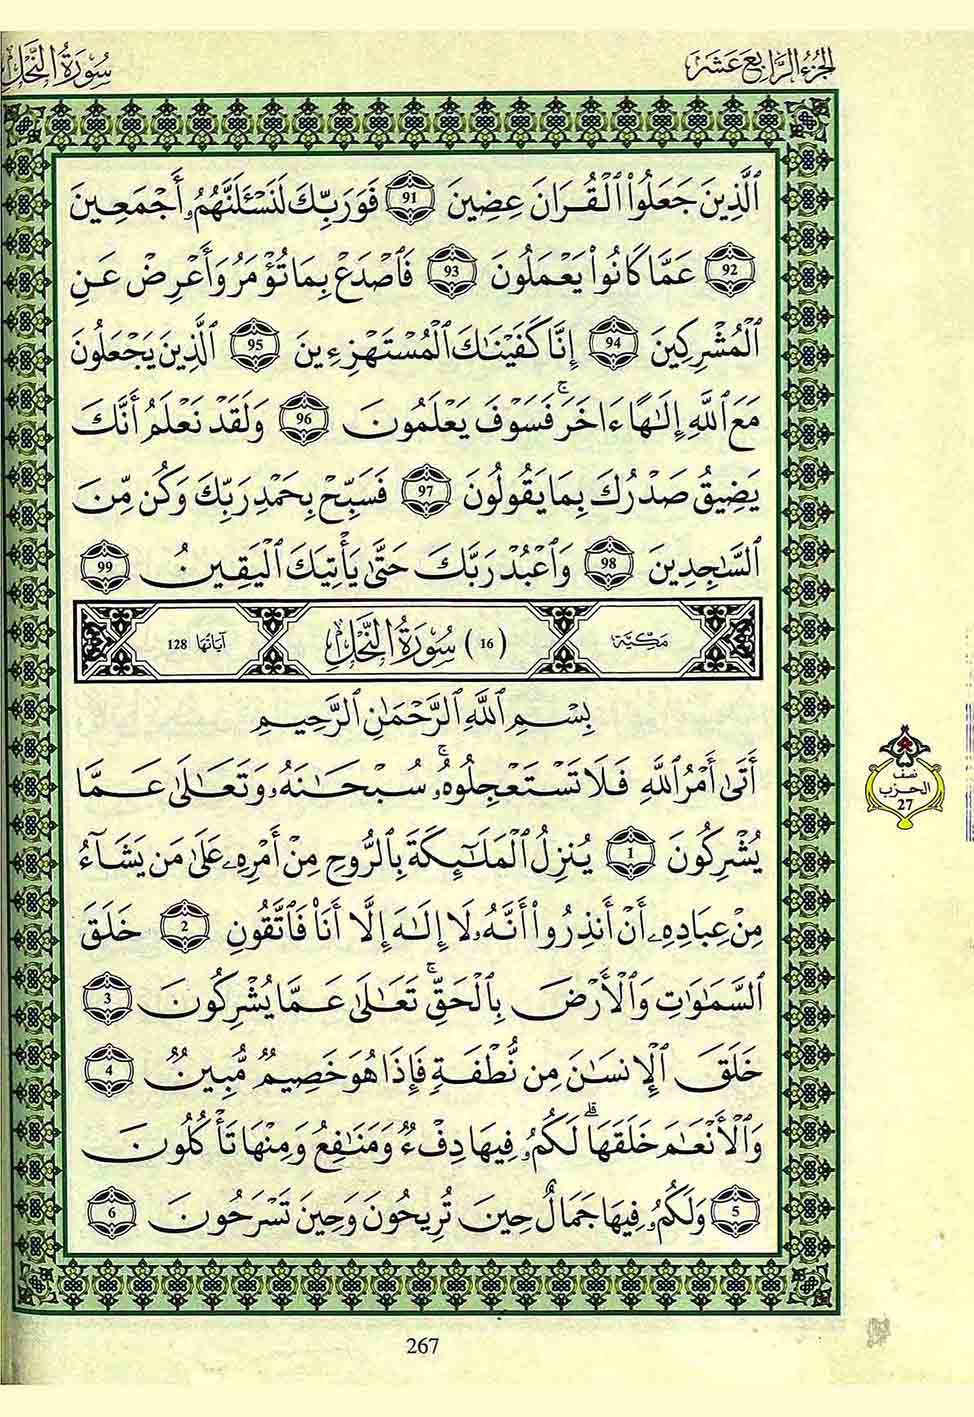 الجزء الرابع عشر
سورة النحل
ٱلَّذِينَ جَعَلُوا۟ ٱلْقُرَانَ عِضِينَ 91 فَوَرَبِّكَ لَنَسْـَٔلَنَّهُمُۥ أَجْمَعِينَ
92 عَمَّا كَانُوا۟ يَعْمَلُونَ 93 فَٱصْدَعْ بِمَا تُؤْمَرُ وَأَعْرِضْ عَنِ
ٱلْمُشْرِكِينَ 94 إِنَّا كَفَيْنَٰكَ ٱلْمُسْتَهْزِءِينَ 95 ٱلَّذِينَ يَجْعَلُونَ
مَعَ ٱللَّهِ إِلَٰهًا ءَاخَرَ ۚ فَسَوْفَ يَعْلَمُونَ 96 وَلَقَدْ نَعْلَمُ أَنَّكَ
يَضِيقُ صَدْرُكَ بِمَا يَقُولُونَ 97 فَسَبِّحْ بِحَمْدِ رَبِّكَ وَكُن مِّنَ
ٱلسَّٰجِدِينَ 98 وَٱعْبُدْ رَبَّكَ حَتَّىٰ يَأْتِيَكَ ٱلْيَقِينُ 99
مكية (16) سورة النحل آياتها 128
بِسْمِ ٱللَّهِ ٱلرَّحْمَٰنِ ٱلرَّحِيمِ
أَتَىٰ أَمْرُ ٱللَّهِ فَلَا تَسْتَعْجِلُوهُۥ ۚ سُبْحَٰنَهُۥ وَتَعَٰلَىٰ عَمَّا
يُشْرِكُونَ 1 يُنزِلُ ٱلْمَلَٰٓئِكَةَ بِٱلرُّوحِ مِنْ أَمْرِهِۦ عَلَىٰ مَن يَشَآءُ
مِنْ عِبَادِهِۦ أَنْ أَنذِرُوٓا۟ أَنَّهُۥ لَا إِلَٰهَ إِلَّا أَنَا۠ فَٱتَّقُونِ 2 خَلَقَ
ٱلسَّمَٰوَٰتِ وَٱلْأَرْضَ بِٱلْحَقِّ ۚ تَعَٰلَىٰ عَمَّا يُشْرِكُونَ 3
خَلَقَ ٱلْإِنسَٰنَ مِن نُّطْفَةٍ فَإِذَا هُوَ خَصِيمٌ مُّبِينٌ 4
وَٱلْأَنْعَٰمَ خَلَقَهَا ۗ لَكُمُۥ فِيهَا دِفْءٌ وَمَنَٰفِعُ وَمِنْهَا تَأْكُلُونَ
5 وَلَكُمُۥ فِيهَا جَمَالٌ حِينَ تُرِيحُونَ وَحِينَ تَسْرَحُونَ 6
نصف
الحزب
27
267